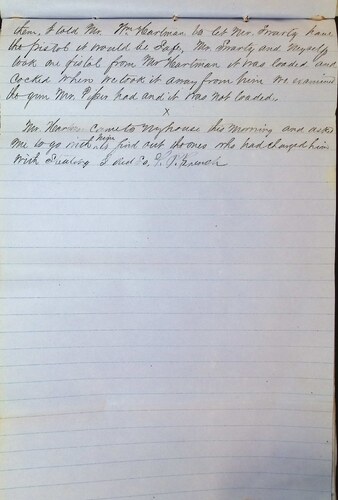 them, I told Mr. Wm Hartman to let Mr. Snarly have
the pistol it would be safe, Mr. Snarly and Myself
took one pistol from Mr Hartman it was loaded and
cocked when we took it away from him we examined
the gun Mr. had and it was not loaded.
x
Mr. came to my house this morning and asked
me to go with him to find out the ones who had charged him
with Stealing I did so,